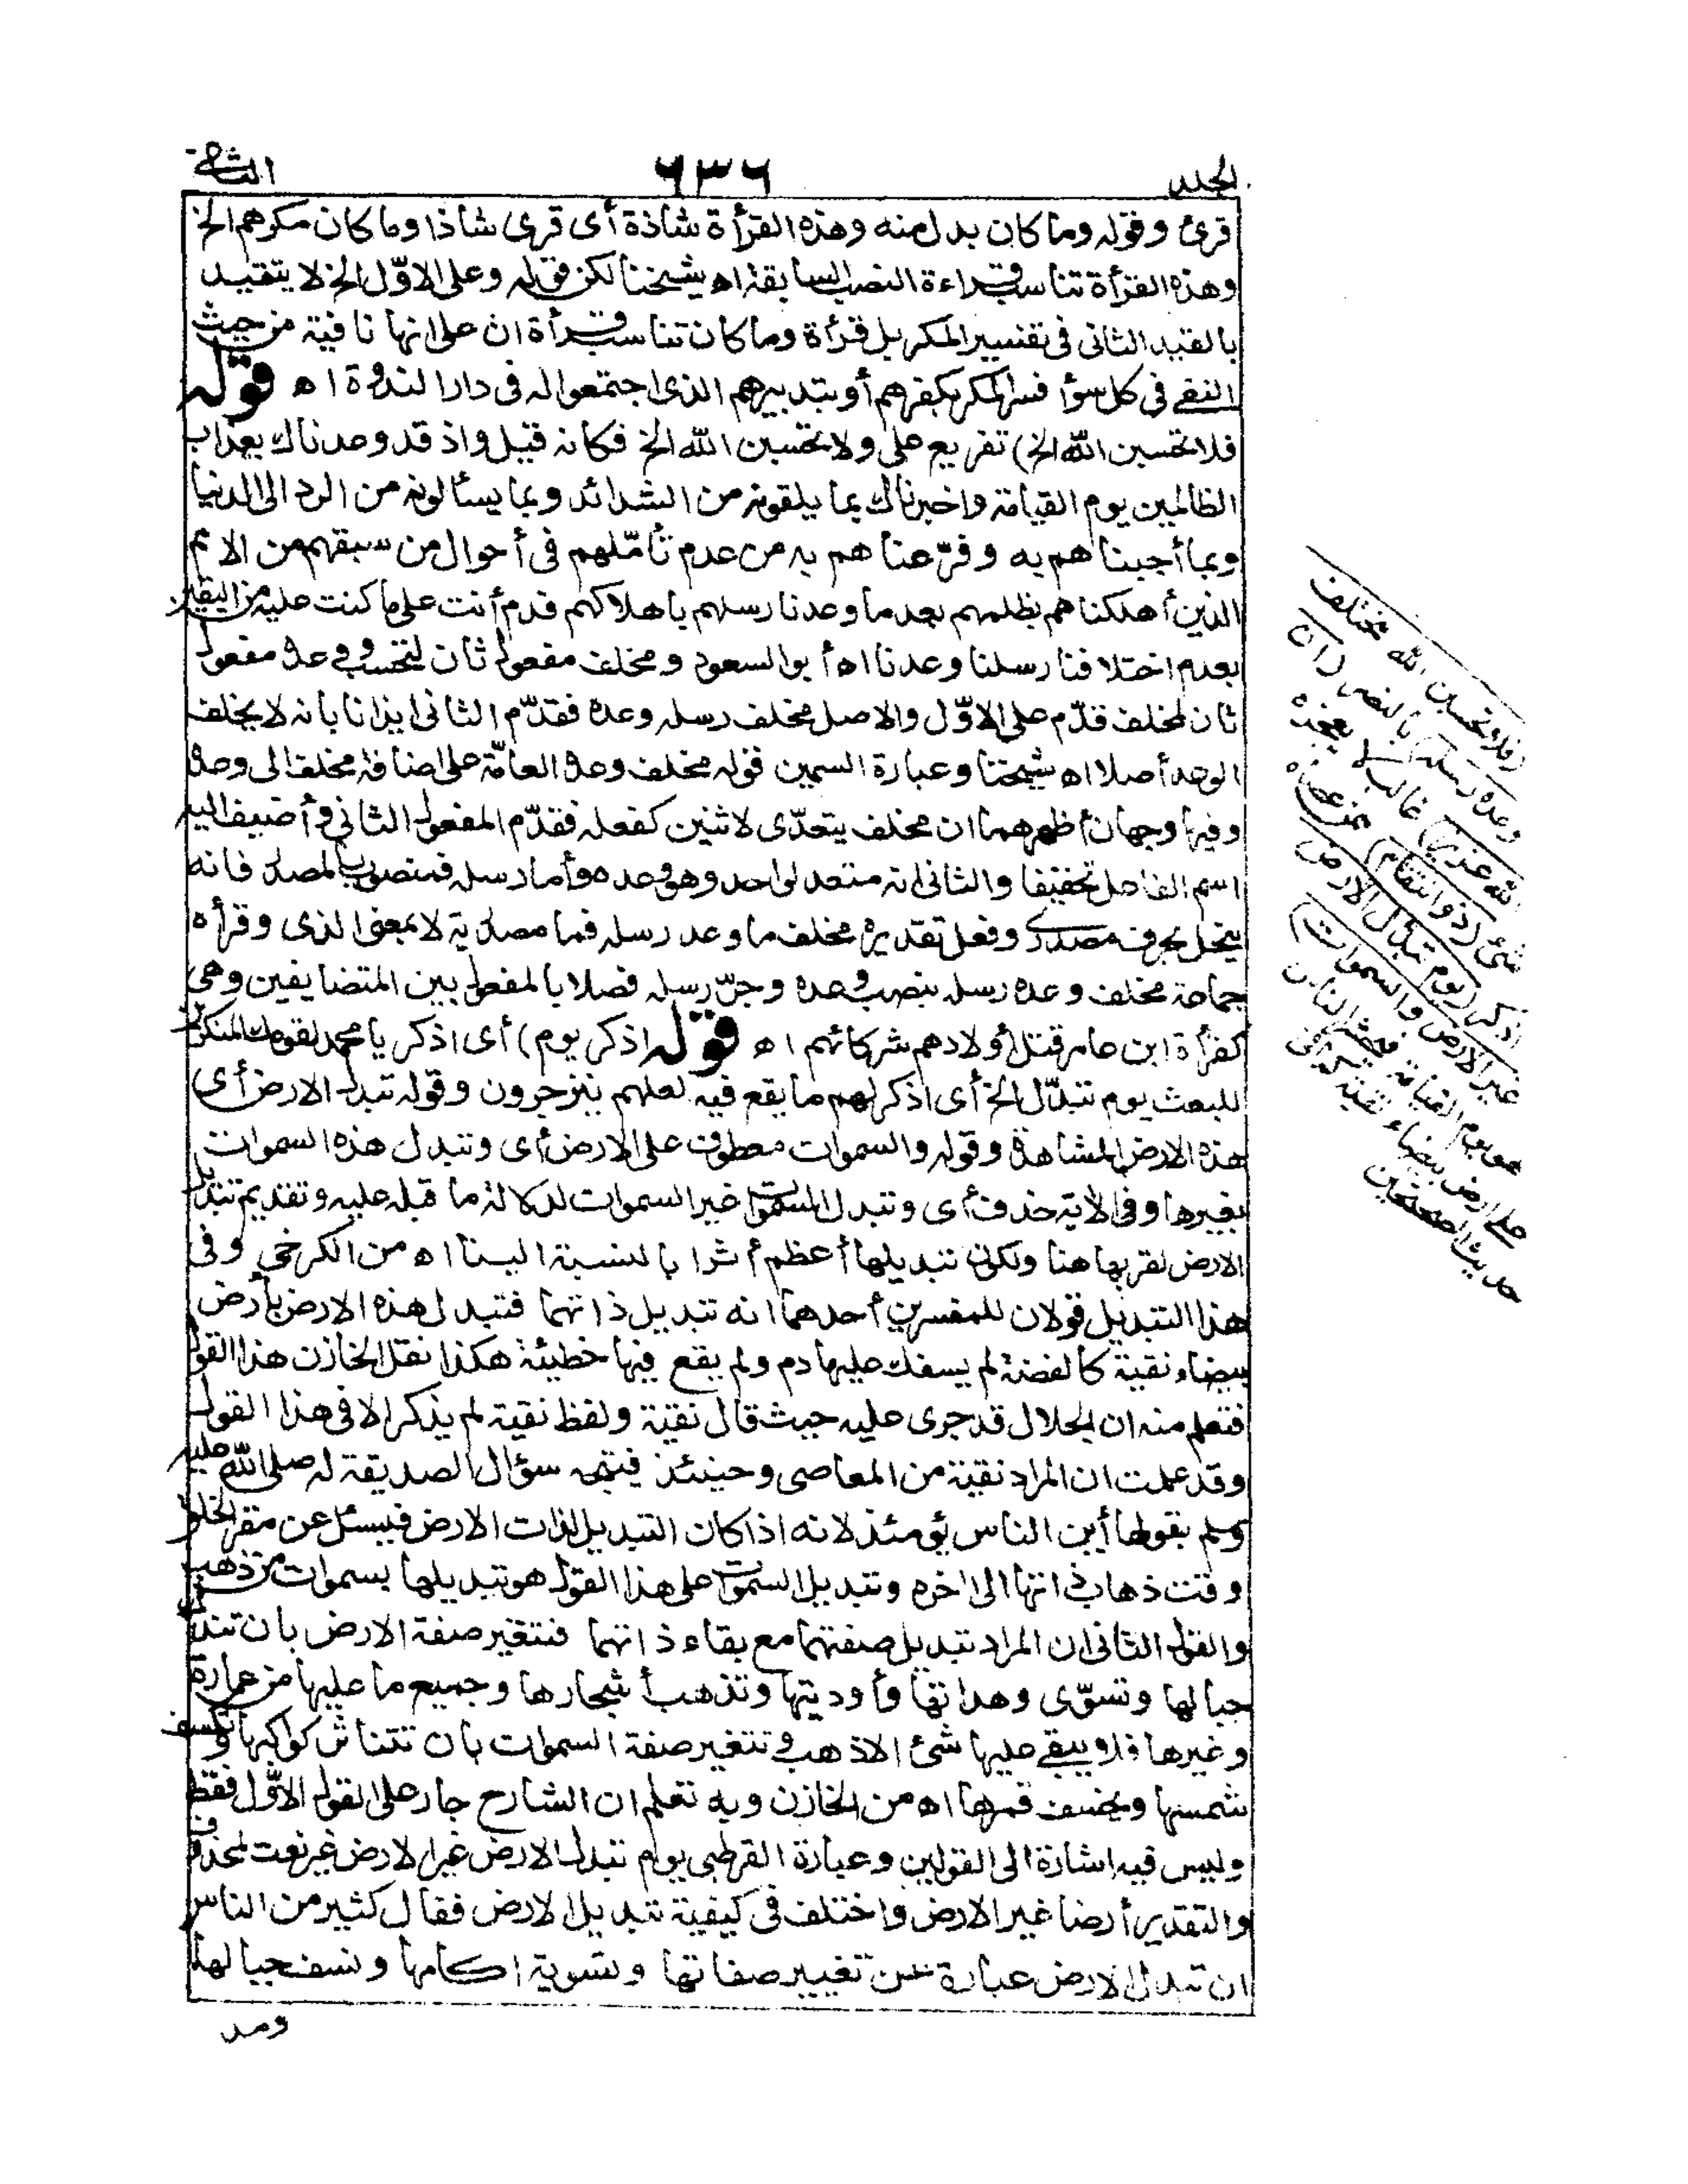 الجلد
٦٣٦
الثانى
قرئ وقوله وما كان بدل منه وهذه القرأة شاذة أى قرئ شاذا وما كان مكرهم الخ
وهذه القرأة تناسب قراءة النصب السابقة اه شيخنا لكن قوله وعلى الاوّل الخ لا يتقيد
بالقيد الثانى فى تفسير المكر بل قرأة وما كان تناسب قرأة ان على انها نافية من حيث
النفى فى كل سوأ فسر المكر بكفرهم أو بتدبيرهم الذى اجتمعوا له فى دار الندوة اه قوله
فلا تحسبن الله الخ) تفريع على ولا تحسبن الله الخ فكانه قيل واذ قد وعدناك بعذاب
الظالمين يوم القيامة واخبرناك بما يلقونه من الشدائد وبما يسئالونه من الرد الى الدنيا
وبما أجبناهم به وفرّعناهم به من عدم تأمّلهم فى أحوال من سبقهم من الامم
الذين أهلكناهم بظلمهم بعد ما وعدنا رسلهم باهلاكهم فدم أنت على ما كنت عليه من اليقين
بعدم اختلافنا رسلنا وعدنا اه أبو السعود ومخلف مفعول ثان لتحسب وعده مفعول
ثان لمخلف قدّم على الاوّل والاصل مخلف رسله وعده فقدّم الثانى ايذانا بانه لا يخلف
الوعد أصلا اه شيخنا وعبارة السمين قوله مخلف وعده العامّة على اضافة مخلف الى وعده
وفيها وجهان أظهرهما ان مخلف يتعدّى لاثنين كفعله فقدّم المفعول الثانى وأضيف اليه
اسم الفاعل تخفيفا والثانى انه متعد لواحد وهو وعده وأما رسله فمنصوب بالمصدر فانه
ينحل بحرف مصدرى وفعل تقديره مخلف ما وعد رسله فما مصدرية لا بمعنى الذى وقرأه
جماعة مخلف وعده رسله بنصب وعده وجرّ رسله فصلا بالمفعول بين المتضايفين وهى
كقرأة ابن عامر قتل أولادهم شركائهم اه قوله اذكر يوم) أى اذكر يا محمد لقومك المنكرين
للبعث يوم تبدّل الخ أى اذكر لهم ما يقع فيه لعلهم ينزجرون وقوله تبدل الارض أى
هذه الارض المشاهدة وقوله والسموات معطوف على الارض أى وتبدل هذه السموات
بغيرها وفى الآية حذف أى وتبدل السموات غير السموات لدلالة ما قبله عليه وتقديم تبديل
الارض لقربها هنا ولكون تبديلها أعظم أثرا بالنسبة الينا اه من الكرخى وفى
هذا التبديل قولان للمفسرين أحدهما انه تبديل ذاتهما فتبدل هذه الارض بأرض
بيضاء نقية كالفضة لم يسفك عليها دم ولم يقع فيها خطيئة هكذا نقل الخازن هذا القول
فتعلم منه ان الجلال قد جرى عليه حيث قال نقية ولفظ نقية لم يذكر الا فى هذا القول
وقد علمت ان المراد نقية من المعاصى وحينئذ فيتجه سؤال الصديقة له صلى الله عليه
وسلم بقولها أين الناس يومئذ لانه اذا كان التبديل لذات الارض فيسئل عن مقر الخلق
وقت ذهاب ذاتها الى اخره وتبديل السموات على هذا القول هو تبديلها بسموات من ذهب
والقول الثانى ان المراد تبديل صفتهما مع بقاء ذاتهما فتتغير صفة الارض بان تندك
جبالها وتسوّى وهداتها وأوديتها وتذهب أشجارها وجميع ما عليها من عمارة
وغيرها فلا يبقى عليها شئ الا ذهب وتتغير صفة السموات بان تتناثر كواكبها وتكسف
شمسها ويخسف قمرها اه من الخازن وبه تعلم ان الشارح جار على القول الاوّل فقط
وليس فيه اشارة الى القولين وعبارة القرطبى يوم تبدل الارض غير الارض غير نعت لمحذوف
والتقدير أرضا غير الارض واختلف فى كيفية تبديل الارض فقال كثير من الناس
ان تبدل الارض عبارة عن تغيير صفاتها وتسوية اكامها ونسف جبالها
ومد
(فلا تحسبن الله مخلف
وعده رسله) بالنصر (ان
الله عزيز) غالب لا يعجزه
شئ (ذو انتقام) ممن عصاه
اذكر (يوم تبدل الارض
غير الارض والسموات)
هو يوم القيامة فيحشر الناس
على ارض بيضاء نقية كما فى
حديث الصحيحين